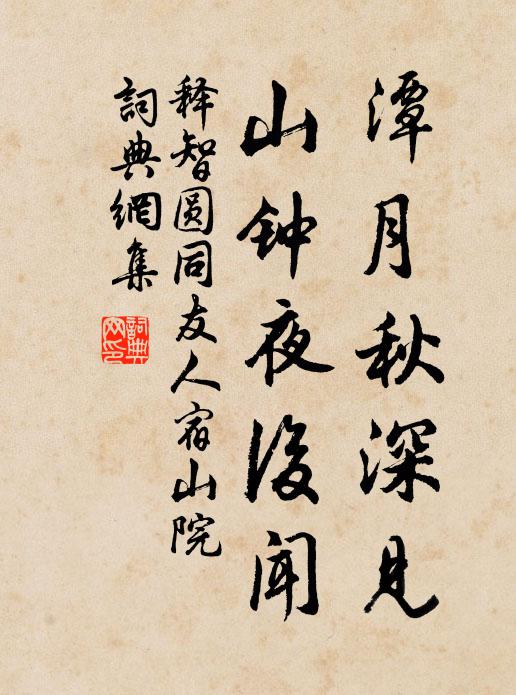 潭月秋深見
山钟夜後闻
释智圆同友人宿山院
詞典網集
詞典
网印